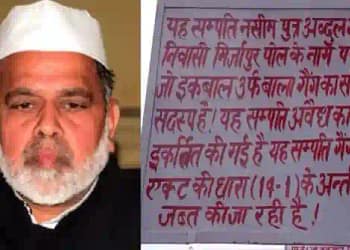 यह सम्पति नसीम पुत्र अब्दुल
निवासी मिर्जापुर पोल के नाम
जो इकबाल उर्फ बाला गैंग का
सदस्य है। यह सम्पति अवैध
इकत्रित की गई है यह सम्पति गैंग
एक्ट की धारा (14-1) के अन्त
जब्त की जा रही है!